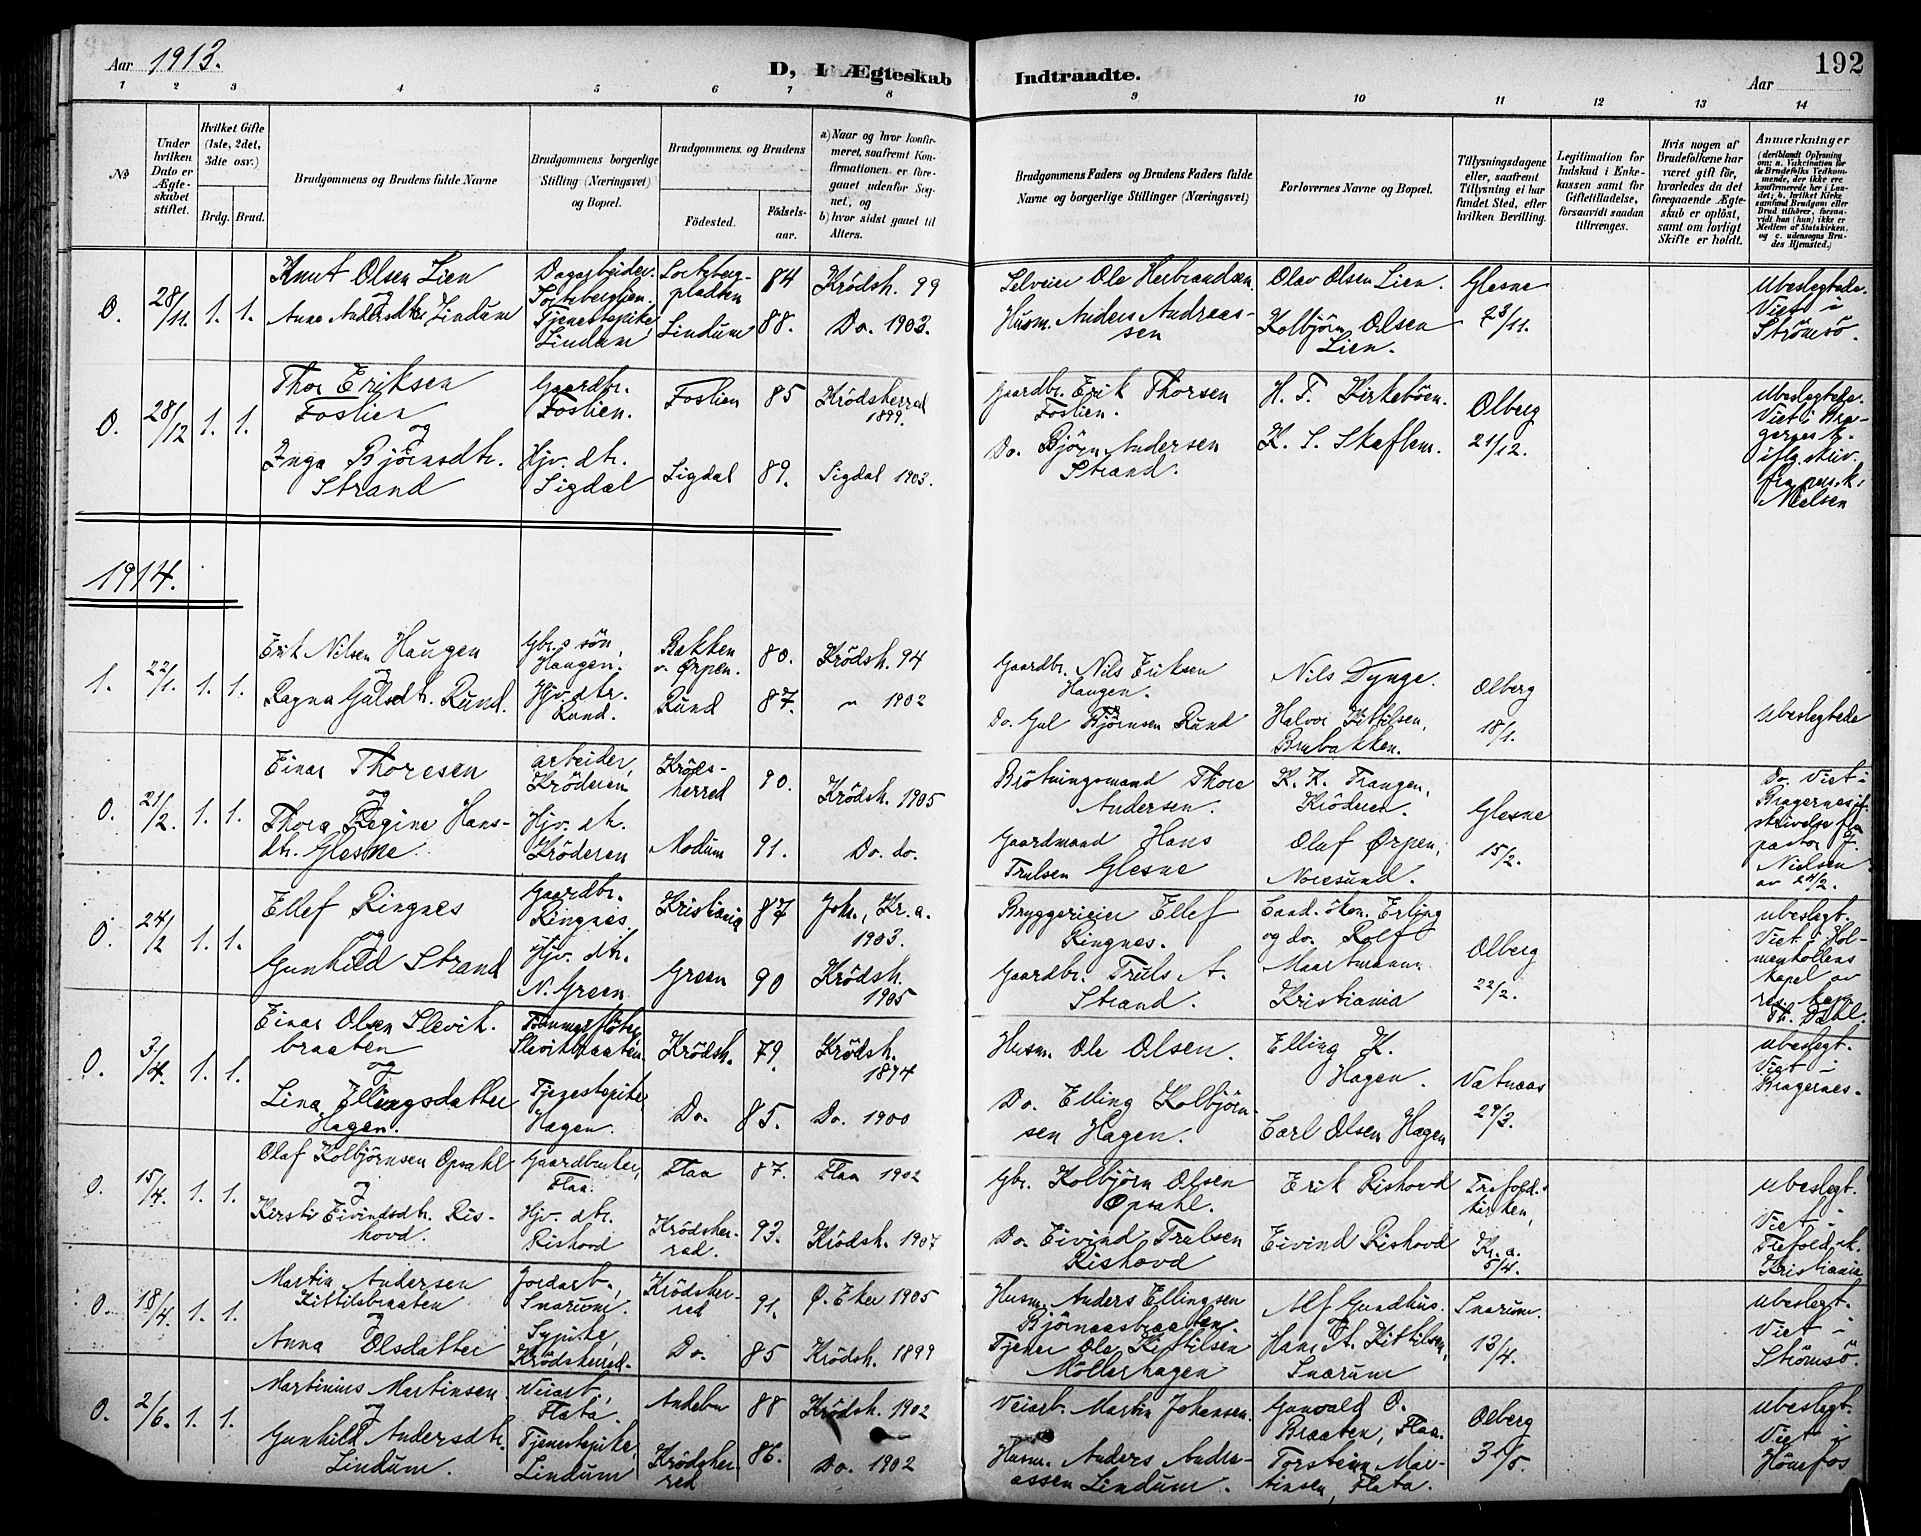 Aar 1913.
D, I Ægteskab
Indtraadte.
Aar
192
1
2
3
4
5
6
7
8
9
10
11
12
13
14
No
Under hvilken Dato er Ægteskabet stiftet.
Hvilket Gifte (1ste, 2det, 3die osv.)
Brdg.
Brud.
Brudgommens og Brudens fulde Navne
Brudgommens borgerlige Stilling (Næringsvei) og Bopæl.
Brudgommens og Brudens
Födested.
Födselsaar.
a) Naar og hvor konfirmeret, saafremt Konfirmationen er foregaaet udenfor Sognet, og
b) hvor sidst gaaet til Alters.
Brudgommens Faders og Brudens Faders fulde Navne og borgerlige Stillinger (Næringsvei)
Forlovernes Navne og Bopæl.
Tillysningsdagene eller, saafremt Tillysning ei har fundet Sted, efter hvilken Bevilling.
Legitimation for Indskud i Enkekassen samt for Giftetilladelse, forsaavidt saadan tiltrænges.
Hvis nogen af Brudefolkene har været gift før, hvorledes da det foregaaende Ægteskab er oplöst, samt om lovligt Skifte er holdt.
Anmærkninger
(deriblandt Oplysning om: a. Vakcination för de Brudefolks Vedkommende, der ikke ere konfirmerede her i Landet; b. hvilket Kirkesamfund Brudgom eller Brud tilhörer, forsaavidt han (hun) ikke er Medlem af Statskirken, og c. udensogns Brudes Hjemsted.)
0. 28/11. 1. 1. Knut Olsen Lien
og
Anne Andersdtr Lindum
Dagarbeider.
Tjenestepike
Lindum
pladsen
Lindum
84
88.
Krödsh. 99
Do. 1903.
Selveier Ole Herbrandsen
Husm. Anders Andreassen
Olav Olsen Lien.
Kolbjörn Olsen
Lien.
Glesne
23/11.
Ubeslegtede.
Viet i
Strömsö.
0. 28/12 1. 1. Thor Eriksen
Foslien
og
Inga Bjørnsdtr.
Strand
Gaardbr.
Foslien.
Hjv. dtr.
Sigdal
Foslien
Sigdal
85
89.
Krödsherred
1899.
Sigdal 1903.
Gaardbr. Erik Thorsen
Foslien.
Do. Björn Andersen
Strand.
H. T. Kirkeböen.
K. S. Skaflem.
Olberg
21/12.
Ubeslegtede.
Viet i Bragernes k.
iflg. skriv.
fra pers. k.
Nielsen
1914.
1. 22/1. 1. 1. Erik Nilsen Haugen
og
Ragna Gulsdtr. Rund.
Gbr.s sön,
Haugen.
Hjv. dtr.
Rund.
Bakken
v. Ørpen.
Rund
80.
87.
Krödsh. 94
" 1902
Gaardbr. Nils Eriksen
Haugen.
Do. Gul Bjørnsen Rund
Nils Dynge.
Halvor Kittilsen,
Brubakken.
Olberg
18/1.
Ubeslegtede
0. 21/2. 1. 1. Einar Thoresen
og
Thora Regine Hansdtr. Glesne.
arbeider,
Kröderen
Hjv. dtr.
Kröderen
Krödsherred
Modum
90.
91.
Krödsh. 1905
Do. do.
Brötningsmand Thore
Andersen.
Gaardmand Hans
Trulsen Glesne
K. K. Trangen,
Kröderen.
Oluf Ørpen,
Noresund.
Glesne
15/2.
Do. Viet i
Bragernes if.
skrivelse fra
pastor J.
Nielsen
av 24/2.
0. 24/2 1. 1. Ellef Ringnes
og
Gunhild Strand
Gaardbr.
Ringnes.
Hjv. dtr.
N. Green
Kristiania
Green
87
90
Joh., Kr.a.
1903.
Krödsh.
1905
Bryggerieier Ellef
Ringnes.
Gaardbr. Truls A.
Strand.
Cand. öken. Erling
og do. Rolf
Maartmann
Kristiania
Olberg
22/2.
ubeslegt.
Viet i Holmenkollens
kapel av
res. kap.
Th. Dahl.
0. 3/4. 1. 1. Einar Olsen Slevikbraaten
og
Lina Ellingsdatter
Hagen.
Tömmerflöter,
Slevikbraaten
Tjenestepike,
Hagen.
Krödsh.
Do.
79.
85.
Krödsh.
1894
Do. 1900
Husm. Ole Olsen.
Do. Elling Kolbjörnsen Hagen.
Elling K.
Hagen.
Carl Olsen Hagen
Vatnaas
29/3.
ubeslegt.
Viet i
Bragernes.
0. 15/4. 1. 1. Olaf Kolbjörnsen Opsahl
og
Kirsti Eivindsdtr. Rishovd.
Gaardbruker,
Flaa.
Hjv. dtr.
Rishovd
Flaa
Krödsherred.
87.
93.
Flaa 1902
Krödsh. 1907
Gbr. Kolbjörn Olsen
Opsahl.
Do. Eivind Trulsen
Rishovd
Erik Rishovd
Eivind Rishovd
Trefold.kirken,
Kr.a.
5/4.
ubeslegt.
Viet i
Trefold. k.
Kristiania
0. 18/4. 1. 1. Martin Andersen
Kittilsbraaten
og
Anna Olsdatter
Jordarb.,
Snarum.
Sypike,
Krödsherred.
Krödsherred
Do.
91.
85
Ø. Eker 1905
Krödsh. 1899
Husm. Anders Ellingsen
Björnaasbraaten.
Tjener Ole Kittilsen
Möllerhagen
Alf Gundhus.
Hans A. Kittilsen,
Snarum
Snarum.
13/4.
ubeslegt.
Viet i
Strömsö.
0. 2/6. 1. 1. Martinius Martinsen
og
Gunhild Andersdtr.
Lindum.
Veiarb.,
Flata.
Tjenestepike,
Lindum
Andebu
Krödsherred
88
86.
Krödsh. 1902
Do. 1902
Veiarb. Martin Johansen.
Husm. Anders Andreassen Lindum.
Gunvald O.
Braaten, Flaa.
Torstein Martinsen, Flata.
Olberg
31/5.
ubeslegt.
Viet i
Hönefos